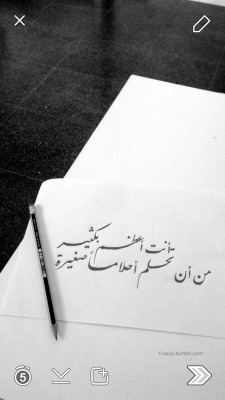 أنت أعظم بكثير
من أن تحلم أحلاماً صغيرة
1vacic.tumblr.com
5